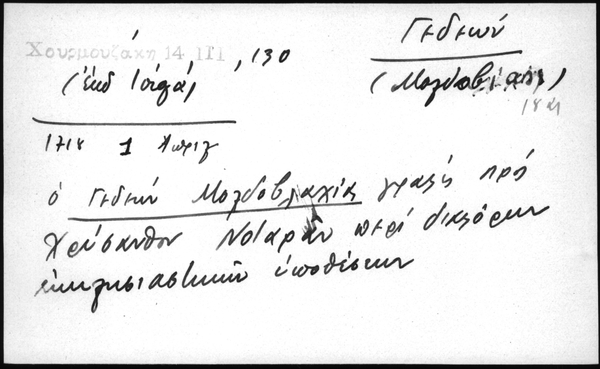 Χουρμουζάκη 14 III, 130
(ἐκδ Ἰόργα)
Γεδεών
(Μολδοβλαχίας)
1718 1 Ἀπριλ
ὁ Γεδεών Μολδοβλαχίας γράφει πρός
Χρύσανθον Νοταρᾶν περί διαφόρων
ἐκκλησιαστικῶν ὑποθέσεων